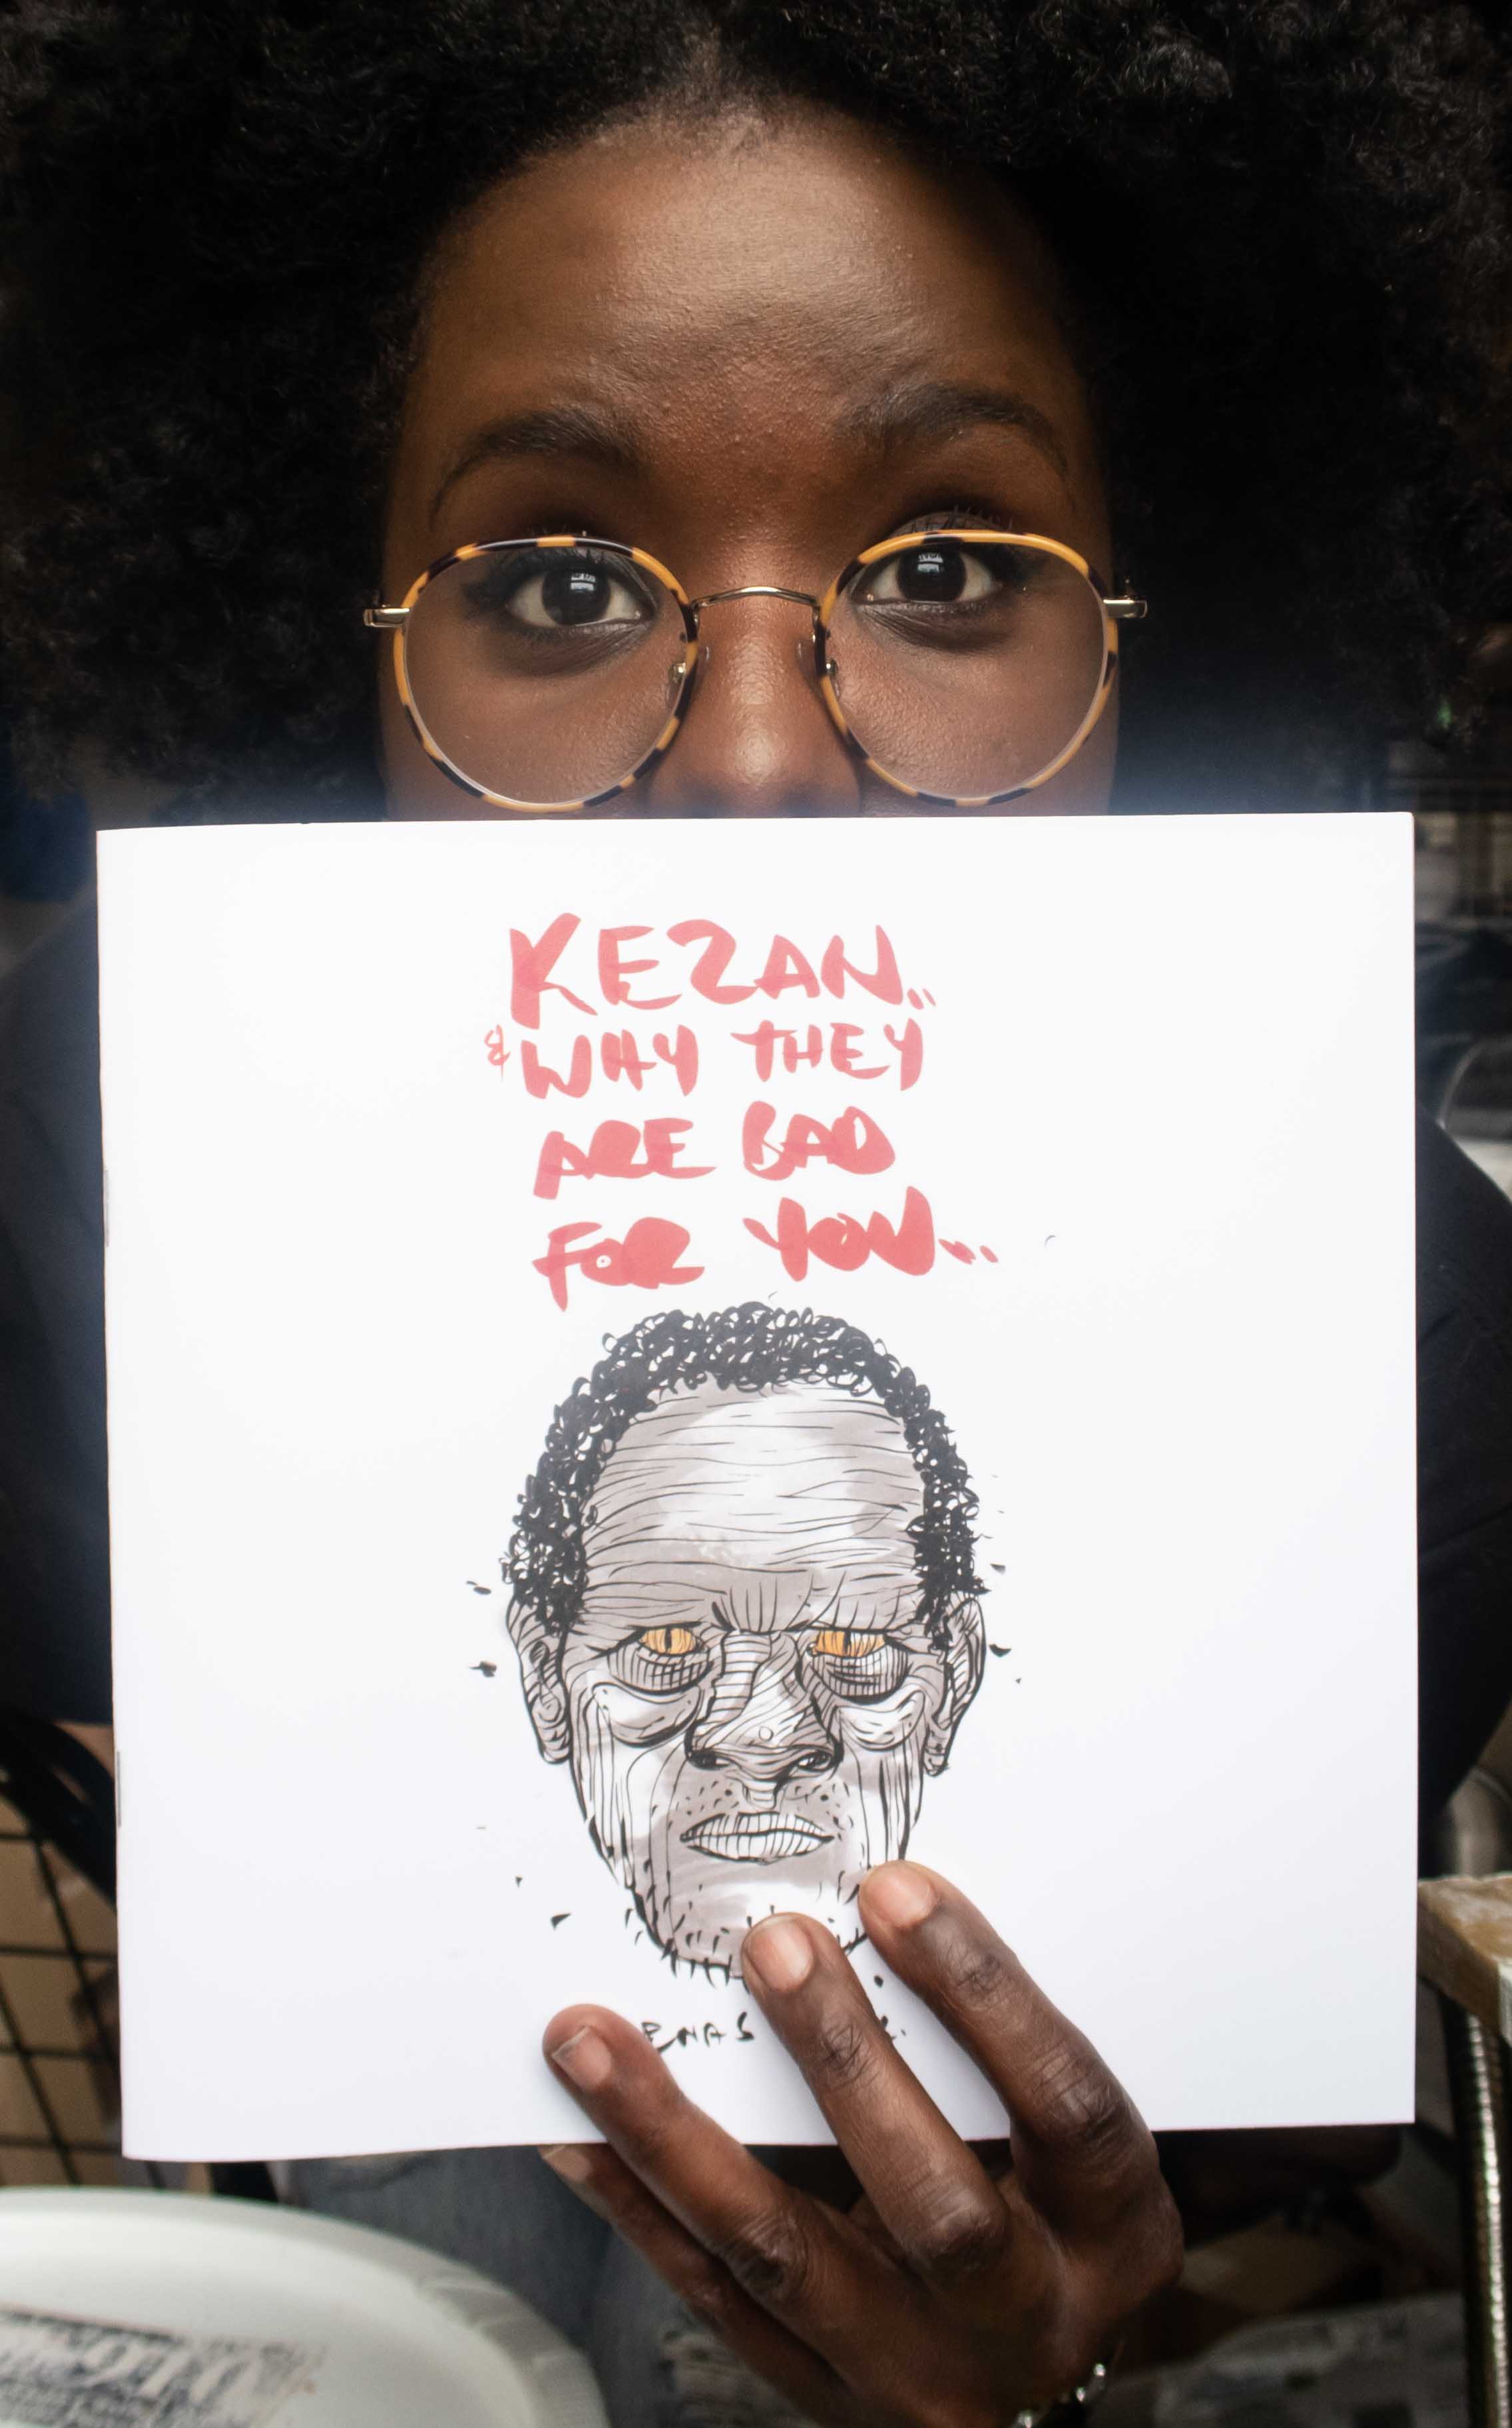 KEZAN..
& WHY THEY
ARE BAD
FOR YOU...